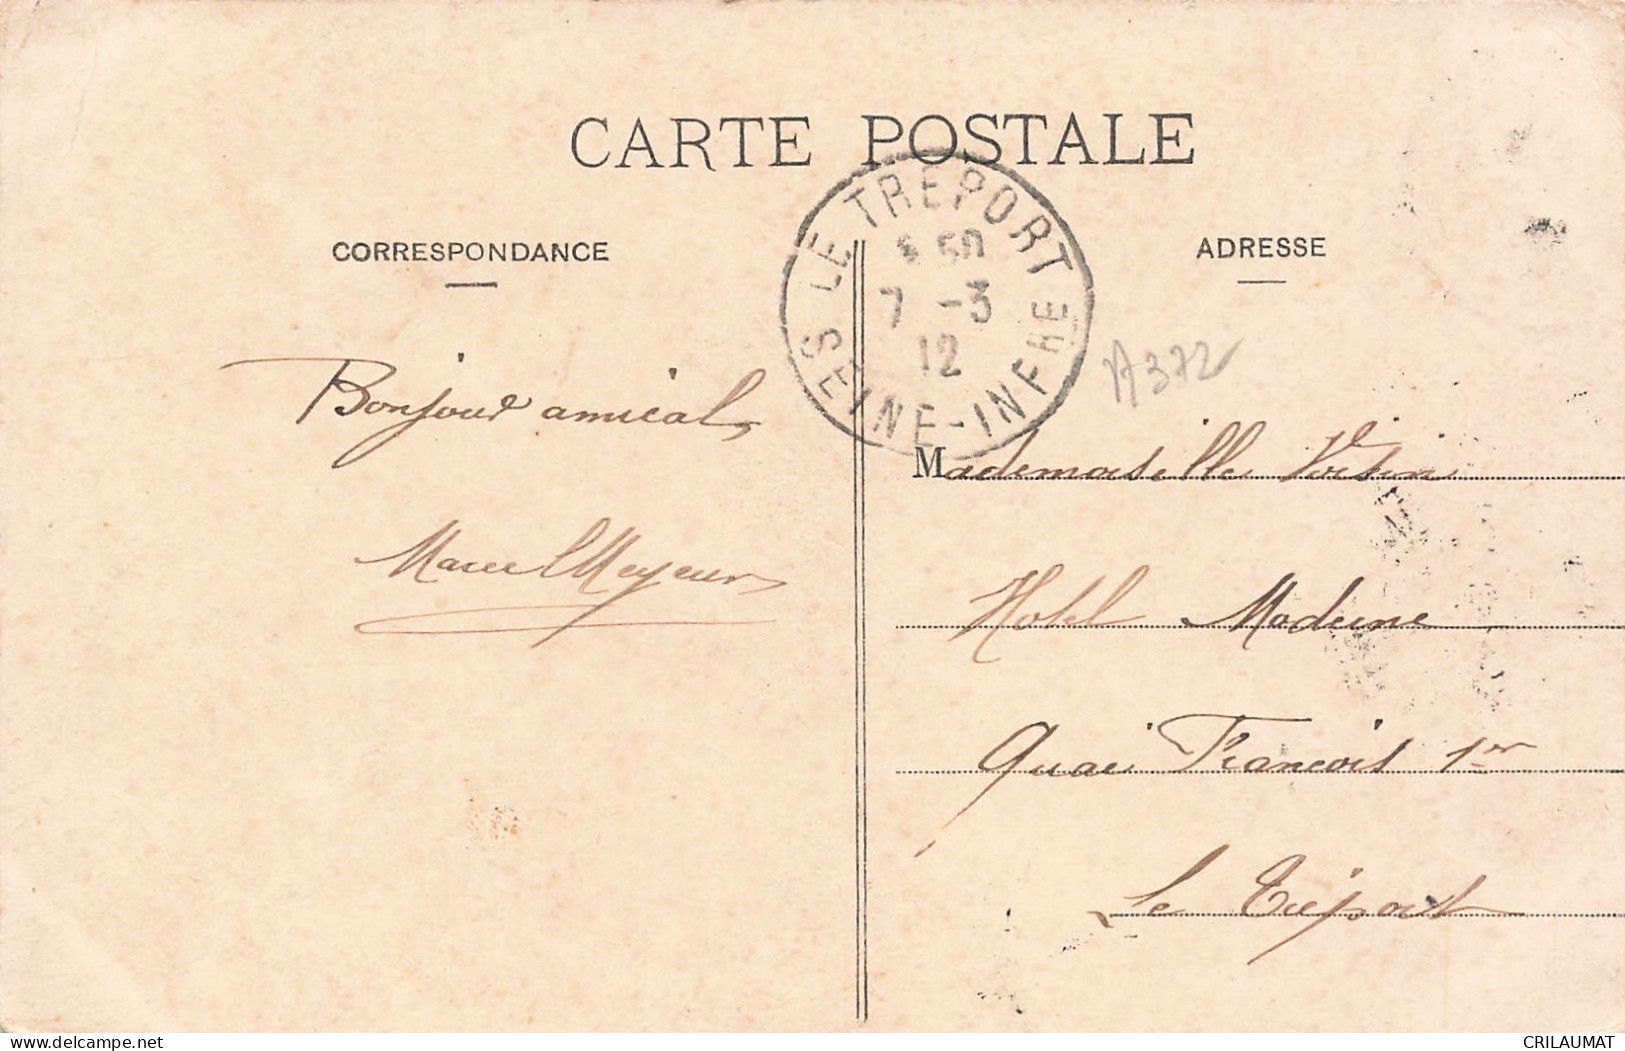 CARTE POSTALE
CORRESPONDANCE
ADRESSE
LE TREPORT
50
7 -3
12
SEINE-INFRE
A372
Bonjour amical
Marcel Meyeur
Mademoiselle Voisin
Hotel Moderne
Quai Francois 1er
Le Tréport
delcampe.net
CRILAUMAT